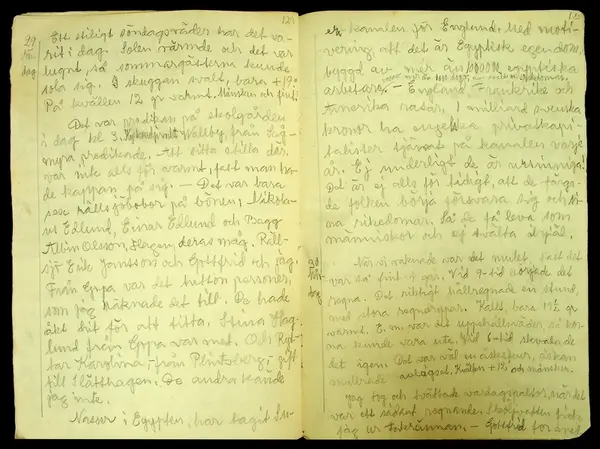 121
29
Sön
dag.
Ett stiligt söndagsväder har det va-
rit i dag. Solen värmde och det var
lugnt, så sommargästerna kunde
sola sig. I skuggan svalt, bara +19°
På kvällen 12 gr varmt. Månsken och fint!
Det var predikan på skolgården
i dag kl 3. Wallby, från Lång-
myra predikade. Att sitta stilla där
var inte alls för varmt, fast man ha-
de kappan på sig. — Det var bara
sex rällsjöbobor på bönen; Nikola-
us Edlund, Einar Edlund och Bagg
Allin Olsson, deras måg. Räll-
sjö Erik Jansson och Gottfrid och jag.
Från Eppa var det tretton personer,
som jag räknade det till. De hade
åkt hit för att titta. Stina Hag-
lund från Eppa var met. Och
Karolina, från Plintsberg, gift
till Slätthagen. De andra kände
jag inte.
Nasser i Egypten, har tagit Su-
ez kanalen för England. Med moti-
vering, att det är Egyptisk egendom,
byggd av mer än egyptiska
arbetare. — England, Frankrike och
Amerika rasar. 1 milliard svenska
kronor ha engelska privatkapi-
talister tjänat på kanalen varje
år. Ej underligt de är ursinniga!
Det är ej alls för tidigt, att de färga-
de folken börja försvara sig och si-
na rikedomar. Så de få leva som
människor och ej svälta ihjäl.
30
Mån
dag
När vi vaknade var det mulet, fast det
var så fint i går. Vid 9-tid började det
regna. Det riktigt hällregnade en stund,
med stora regndroppar. Kallt, bara 13½ gr
varmt. E. m. var det uppehållsväder, så kor-
na kunde vara ute. Vid 6-tid skvalade
det igen. Det var väl en åskskur, åskan
mullrade avlägset. Kvällen + 12° och månsken.
Jag tog och tvättade vardagspaltor, när det
var ett sådant regnande. Sköljvatten fick
jag ur takrännan. — Gottfrid for å vet